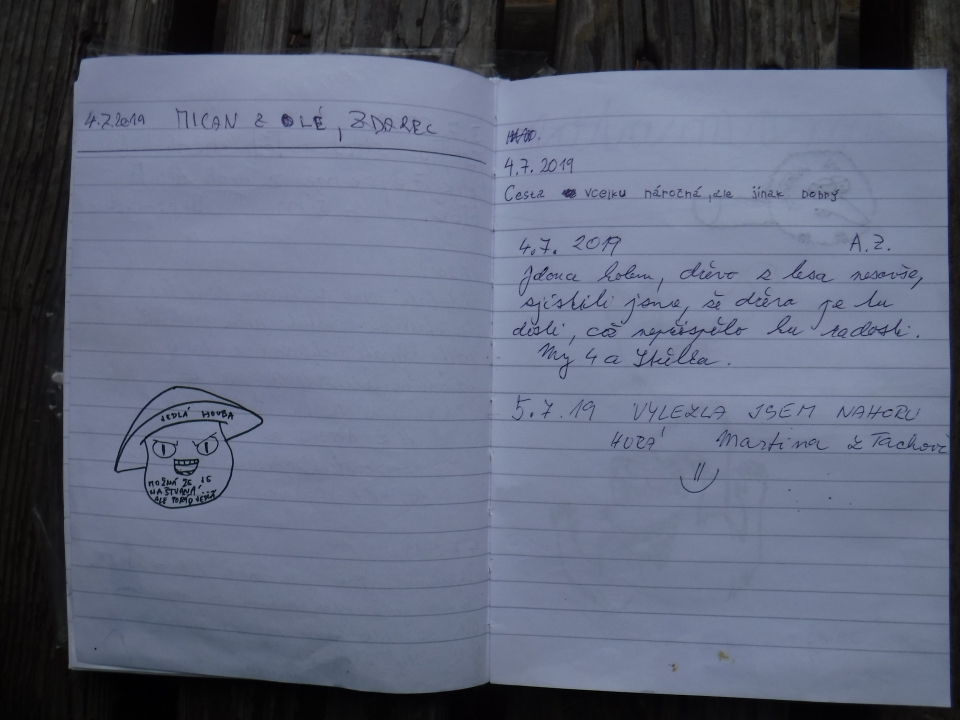 4.7.2019 MICAN Z OLÉ, ZDAREC
JEDLÁ HOUBA
MOŽNÁ JE
NAŠTVANÁ
ALE POŘÁD JEDLÁ
4.7.2019
Cesta vcelku náročná, ale jinak dobrý
4.7. 2019 A.Z.
Jdouce kolem, dřevo z lesa nesouce,
zjistili jsme, že díra je tu
dosti, což nepřispělo ku radosti.
My 4 a
5.7.19 VYLEZLA JSEM NAHORU
HURÁ Martina z Tachova